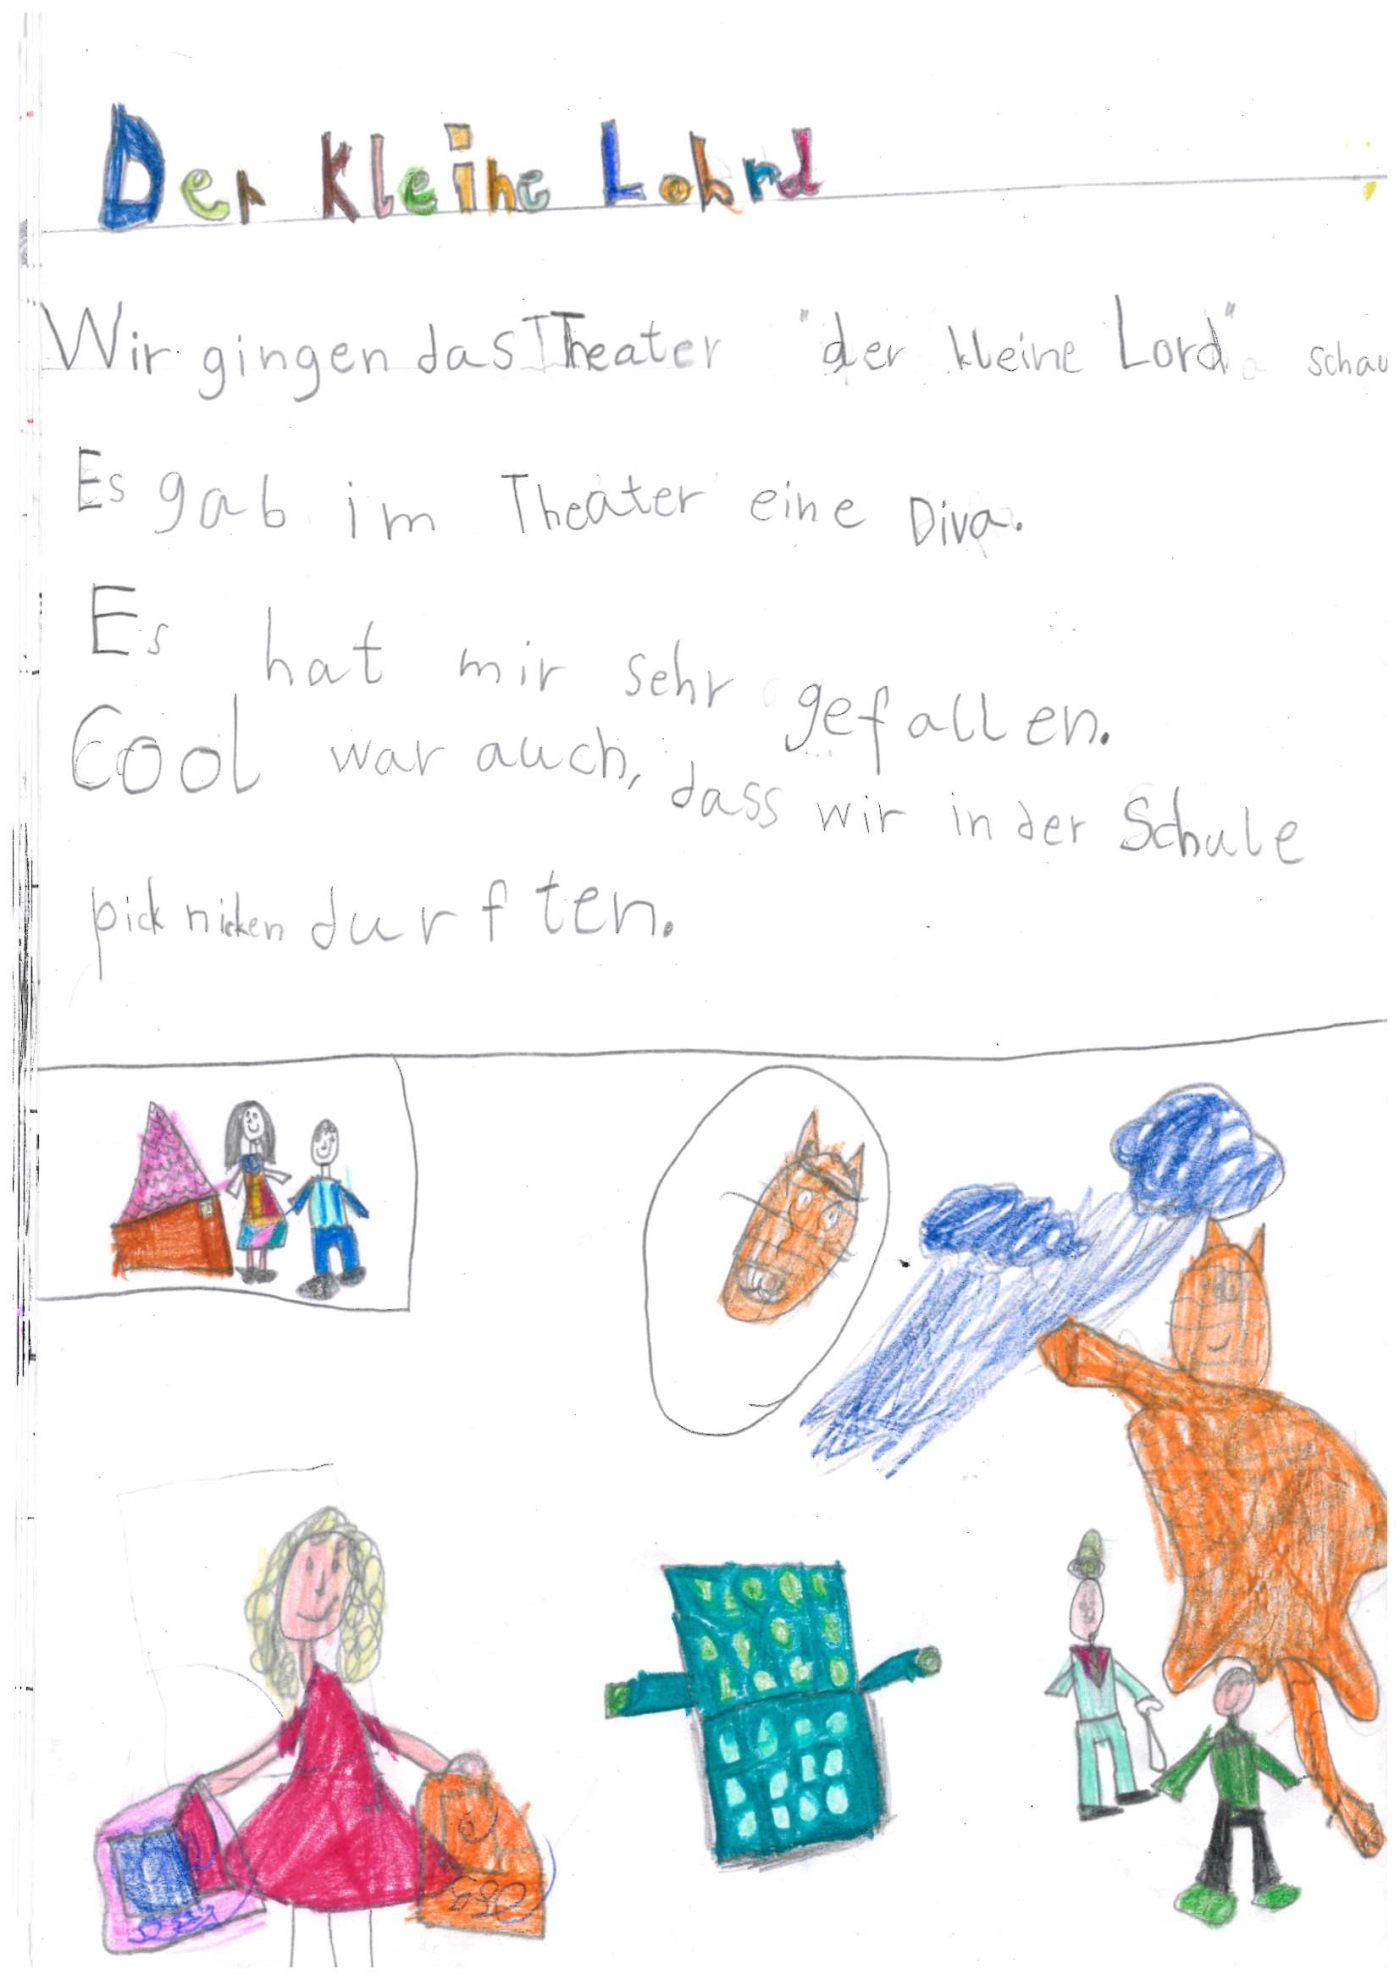 Der kleine Lohrd
Wir gingen das Theater "der kleine Lord" schau
Es gab im Theater eine Diva.
Es hat mir sehr gefallen.
Cool war auch, dass wir in der Schule
picknicken durften.